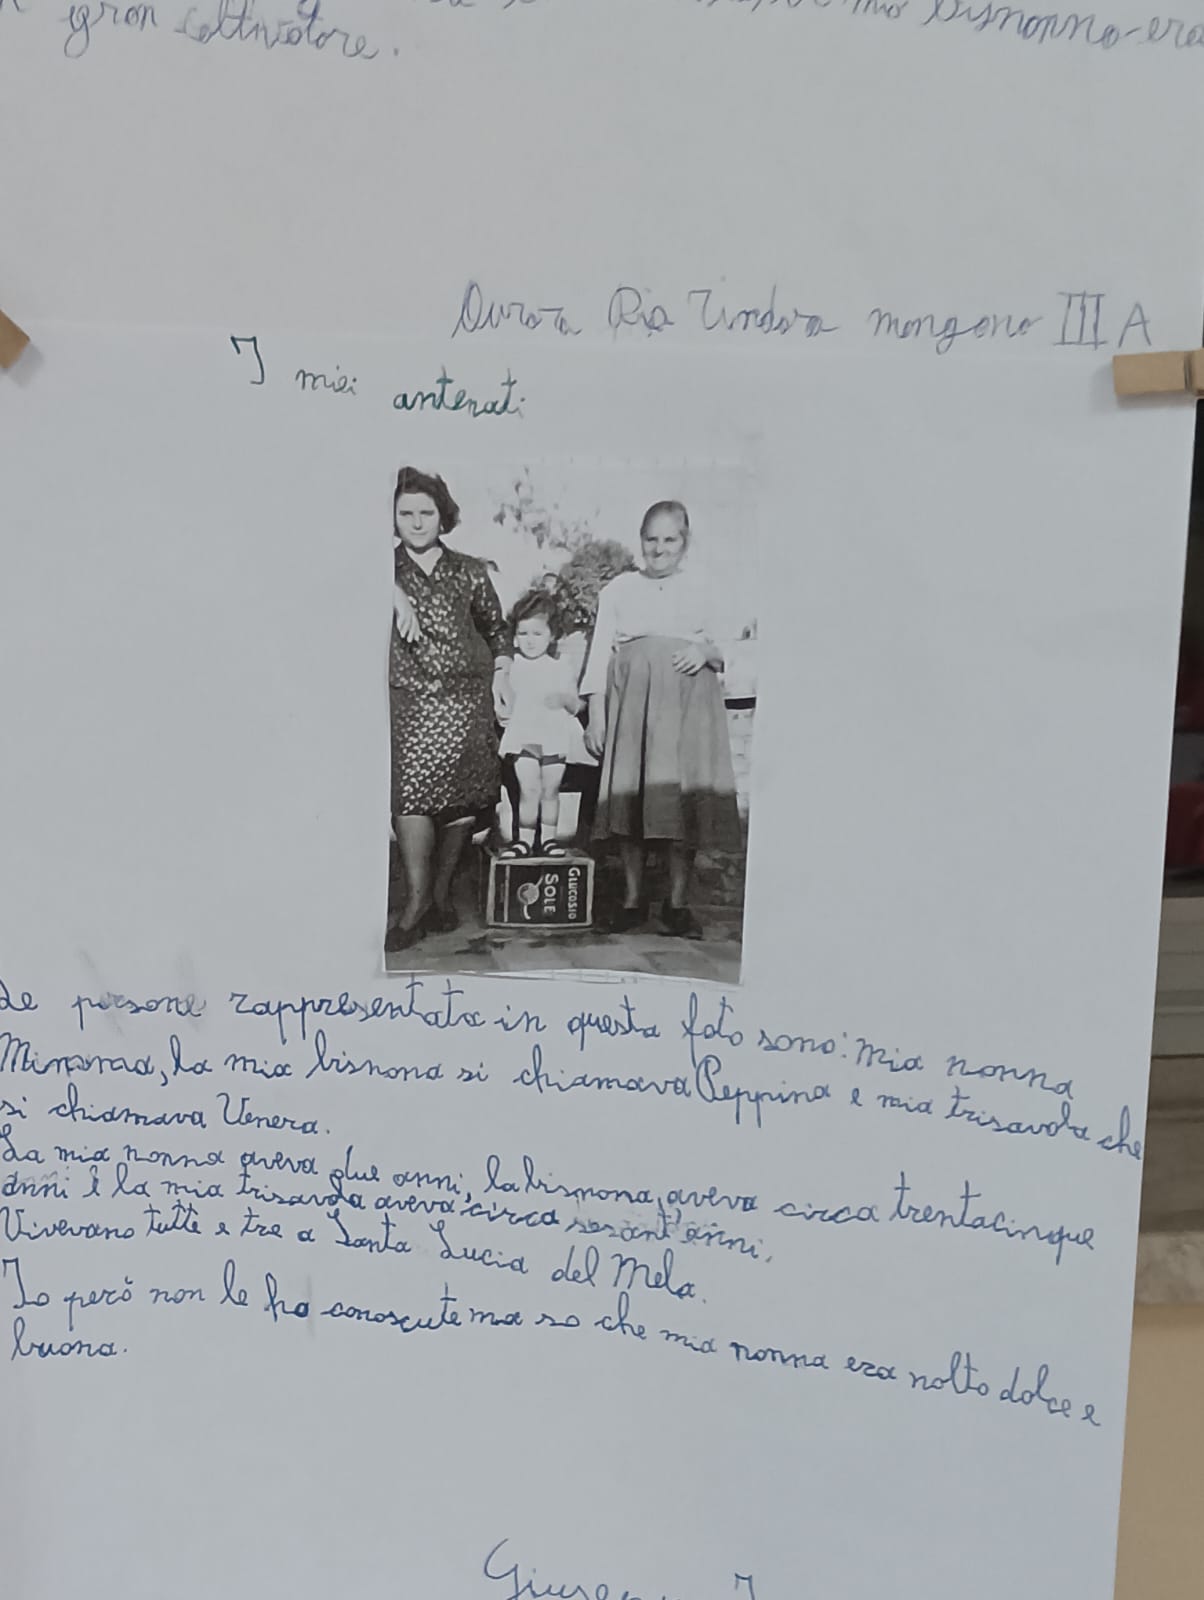 mio bisnonno era
gran coltivatore.
Aurora Pia Tindara mangano III A
I miei antenati
GLUCOSIO
SOLE
Le persone rappresentata in questa foto sono: mia nonna
la mia bisnona si chiamava Peppina e mia trisavola che
si chiamava Venera.
La mia nonna aveva due anni, la bisnona, aveva circa trentacinque
anni e la mia trisavola aveva circa sesant'anni,
Vivevano tutte e tre a Santa Lucia del Mela.
Io però non le ho conoscute ma so che mia nonna era nolto dolce e
buona.